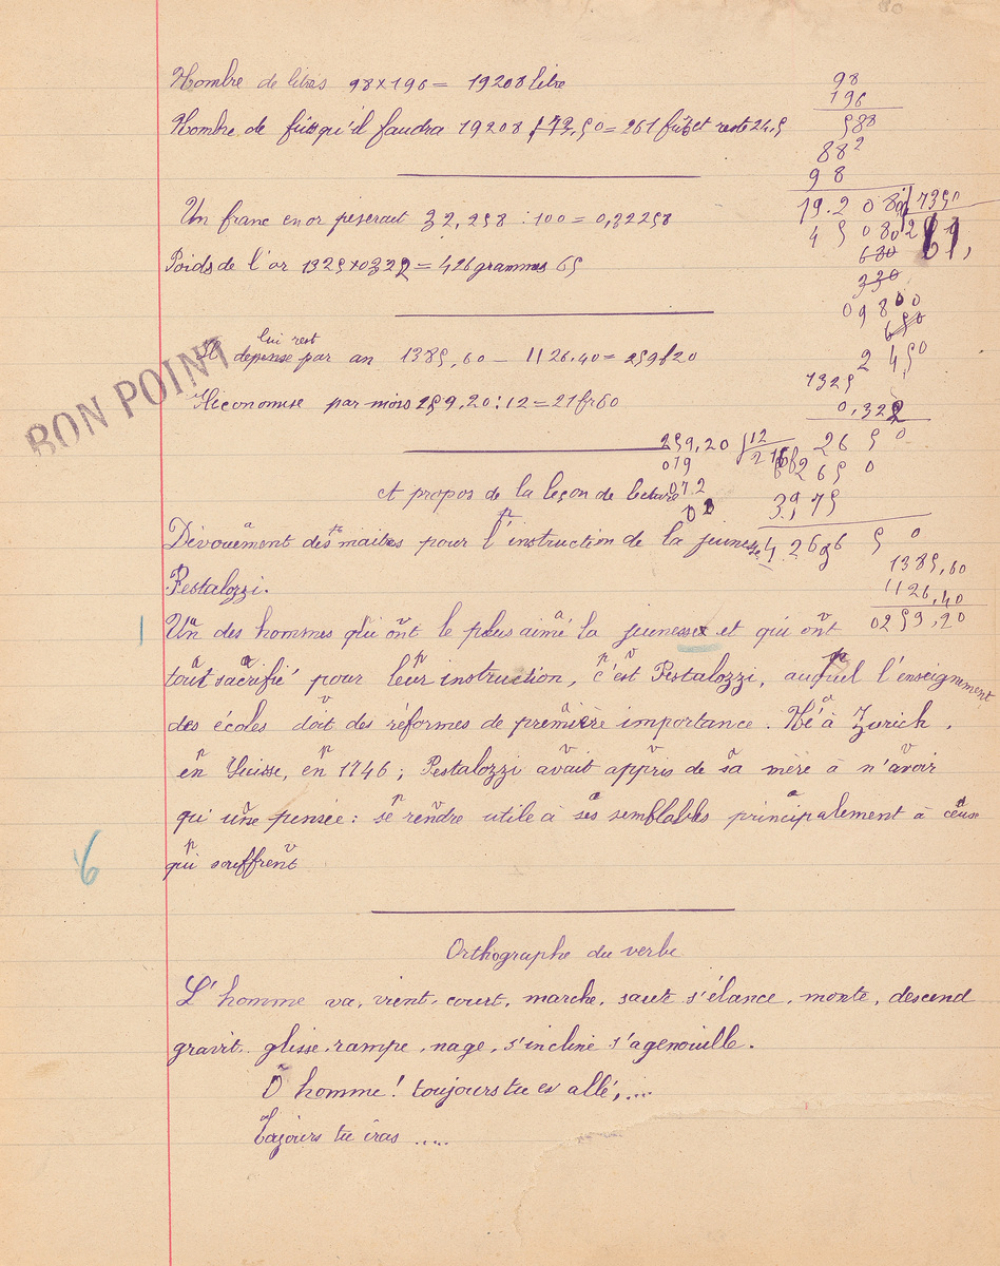 Nombre de litres 98 x 196 = 19208 litre
98
196
588
882
98
19.208
Nombre de fûts qu'il faudra 19208 : 73,50 = 261 fûts et reste 24,5
Un franc en or peserait 32,258 : 100 = 0,32258
Poids de l'or 1325 x 0,322 = 426 grammes 65
lui rest
Il depense par an 1385,60 - 1126.40 = 259f20
Il économise par mois 259,20 : 12 = 21fr60
BON POINT
1325
0,322
26 5 0
265 0
3975
4.266 5 0
259,20 12
079
07.2
1385,60
1126,40
0259,20
A propos de la leçon de lecture
Dévouement des maîtres pour l'instruction de la jeunesse.
Pestalozzi.
1
Un des hommes qui ont le plus aimé la jeunesse et qui ont
tout sacrifié pour leur instruction, c'est Pestalozzi, auquel l'enseignement
des écoles doit des réformes de première importance. Né à Zurich,
en Suisse, en 1746 ; Pestalozzi avait appris de sa mère à n'avoir
qu'une pensée : se rendre utile à ses semblables principalement à ceux
6
qui souffrent
Orthographe du verbe
L'homme va, vient, court, marche, saute s'élance, monte, descend
gravit, glisse, rampe, nage, s'incline s'agenouille.
Ô homme ! toujours tu es allé,....
Tojours tu iras .....